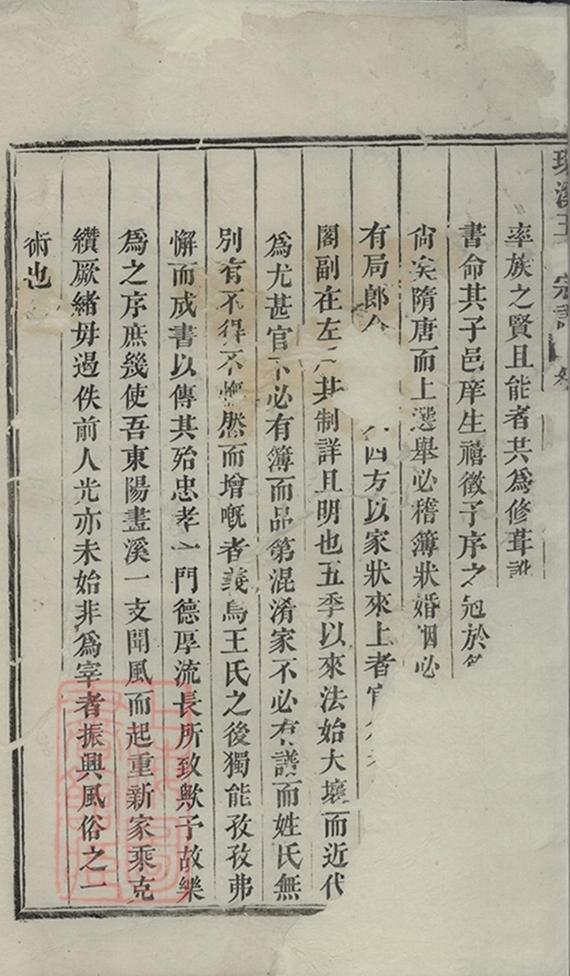 溪王 宗譜
率族之賢且能者共爲修葺
書命其子邑庠生禧徵予序之冠於
尙矣隋唐而上選舉必稽簿狀婚姻必
有局郎 四方以家狀來上者官
閣副在左 其制詳且明也五季以來法始大壞而近代
爲尤甚官不必有簿而品第混淆家不必有譜而姓氏無
別有不得不慨然而增嘅者義烏王氏之後獨能孜孜弗
懈而成書以傳其殆忠孝一門德厚流長所致歟予故樂
爲之序庶幾使吾東陽晝溪一支聞風而起重新家乘克
纘厥緒毋過佚前人光亦未始非爲宰者振興風俗之一
術也